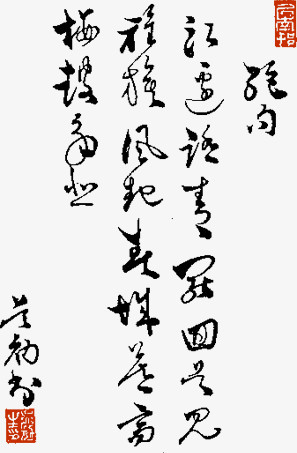 絕句
江邊踏青罷回首見
旌旗風起春城暮高
樓鼓角悲